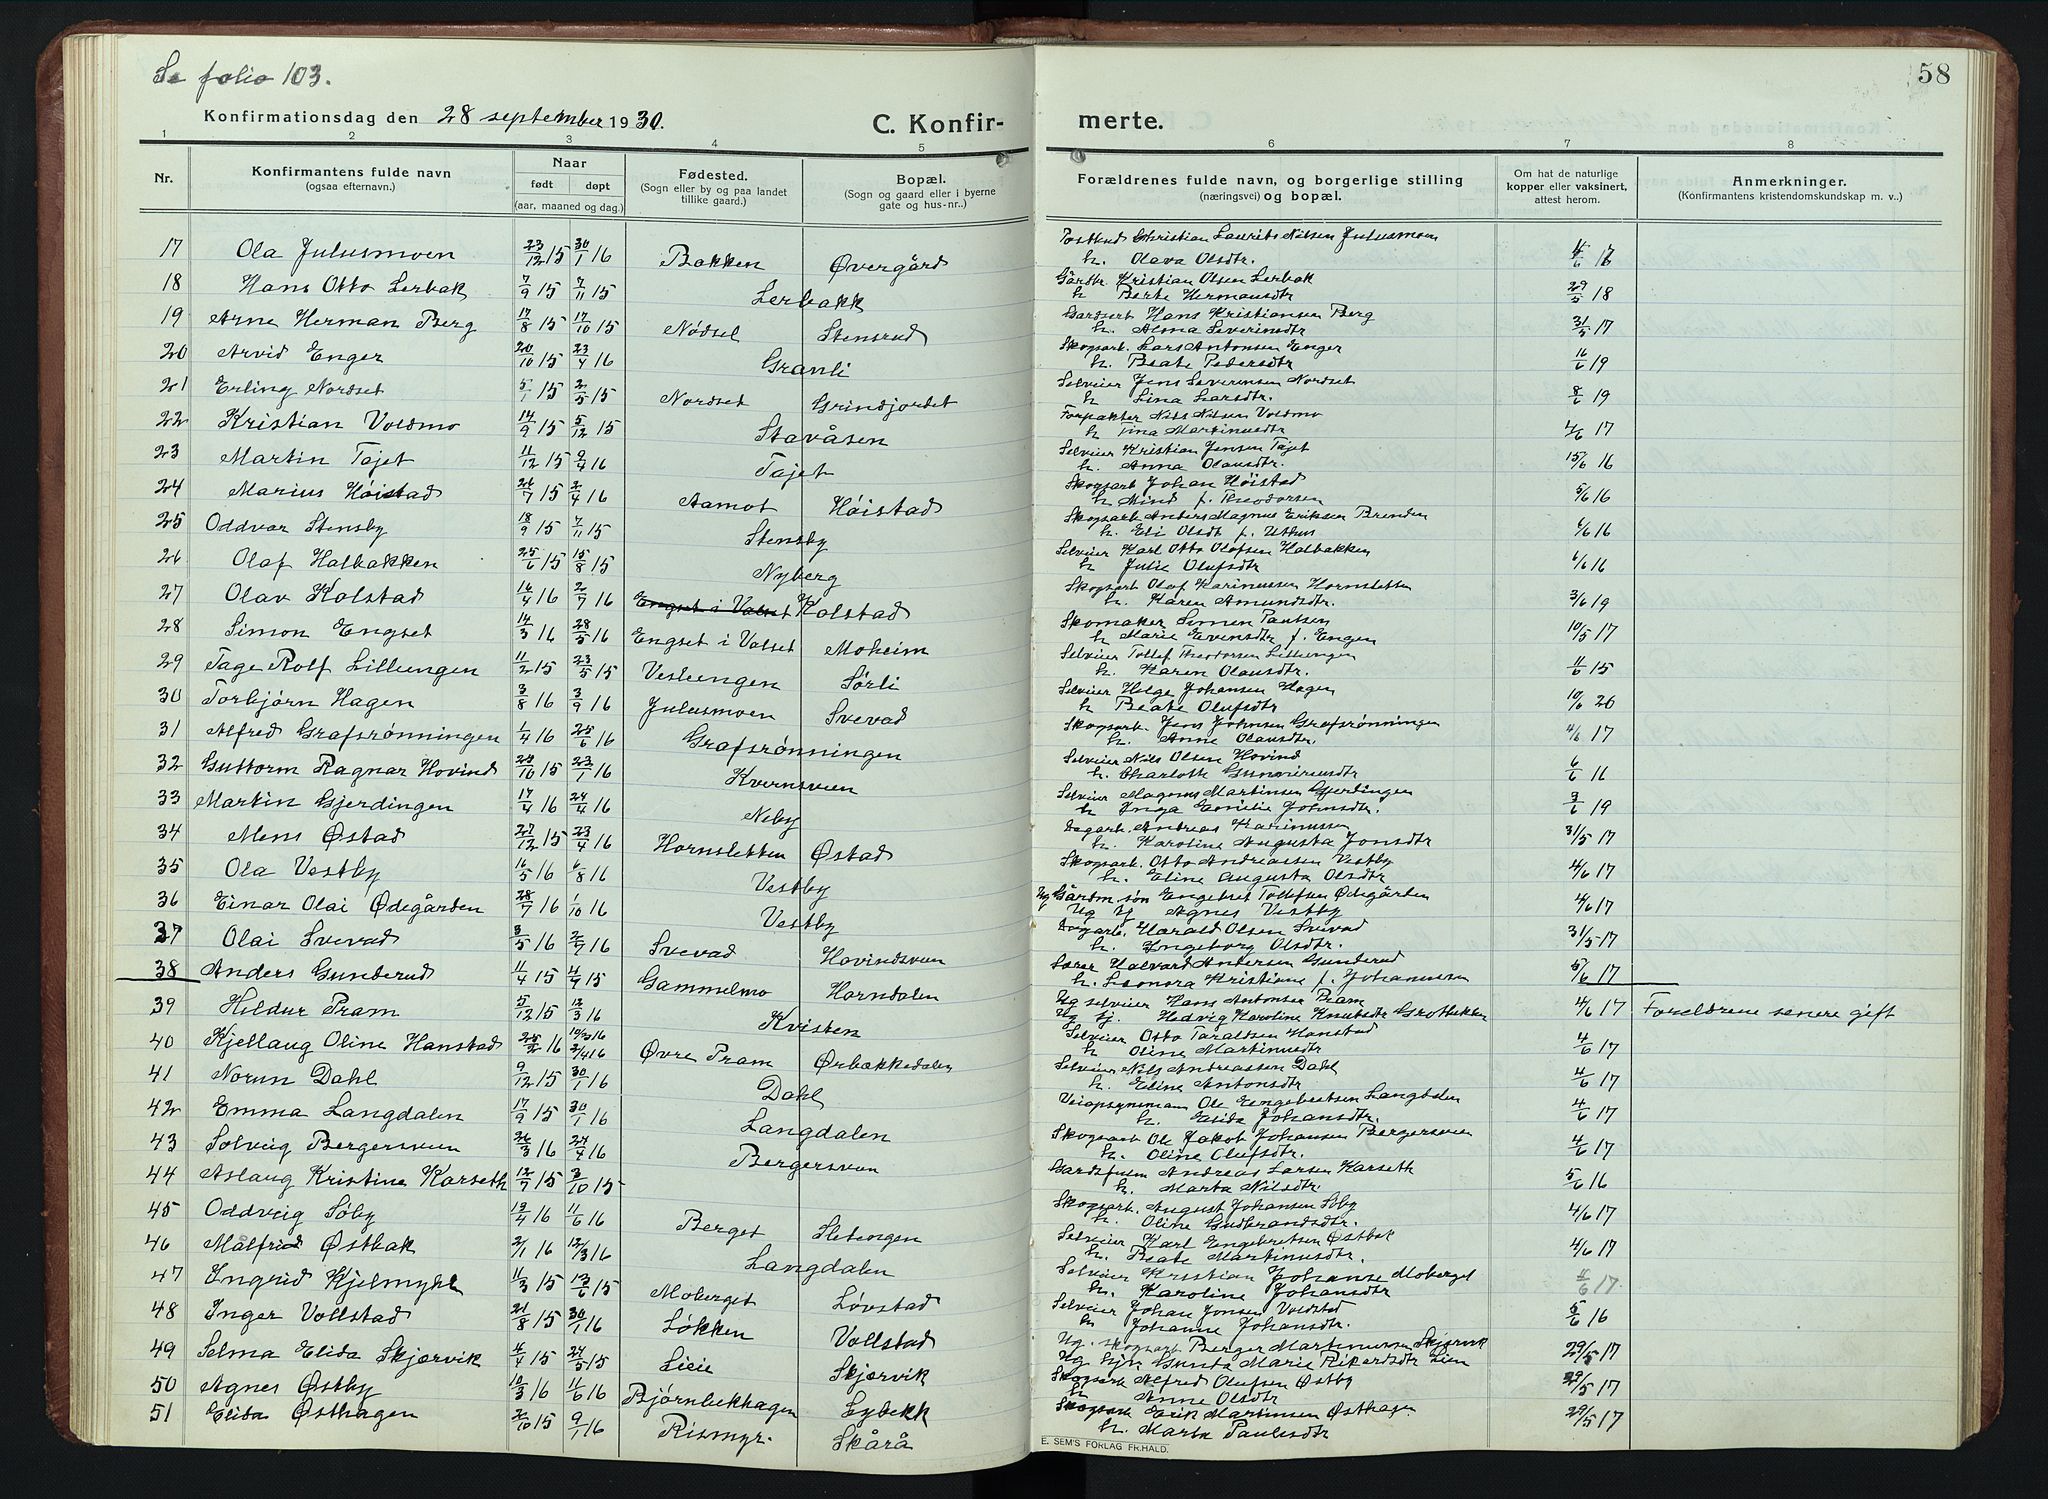 Se folio 103.
58
Konfirmationsdag den 28 september 1930.
C. Konfirmerte.
1 2 3 4 5 6 7 8
Nr.
Konfirmantens fulde navn
(ogsaa efternavn.)
Naar
født døpt
(aar, maaned og dag.)
Fødested.
(Sogn eller by og paa landet
tillike gaard.)
Bopæl.
(Sogn og gaard eller i byerne
gate og hus-nr..)
Forældrenes fulde navn, og borgerlige stilling
(næringsvei) og bopæl.
Om hat de naturlige
kopper eller vaksinert,
attest herom.
Anmerkninger.
(Konfirmantens kristendomskundskap m. v..)
17 Ola Julusmoen 23/12 15 30/1 16 Bakken Øvergård Christian Laurits Nilsen Julusmoen
h. Olava Olsdtr.
18 Hans Otto Lerbak 7/9 15 7/11 15 Lerbakk Gårdbr. Kristian Olsen Lerbak 29/5 18
h Berte Hermansdtr
19 Arne Herman Berg 17/8 15 17/10 15 Nødsel Stensrud Hans Kristiansen Berg 31/5 17
h. Alma Severinsdtr
20 Arvid Enger 20/10 15 23/4 16 Granli Skogsarb. Lars Antonsen Enger 16/6 19
h. Beate Pedersdtr
21 Erling Nordset 5/1 15 2/5 15 Nordset Grindjordet Selveier Jens Severinsen Nordset 8/6 19
h Lina Larsdtr.
22 Kristian Voldmo 14/9 15 5/12 15 Stavåsen Forpakter Nils Nilsen Voldmo 4/6 17
h Tina Martinusdtr
23 Martin Tajet 11/12 15 9/4 16 Tajet Selveier Kristian Jensen Tajet 15/6 16
h. Anna Olausdtr.
24 Marius Høistad 26/7 15 2/4 16 Aamot Høistad Skogsarb Johan Høistad 5/6 16
h f. Theodorsen
25 Oddvar Stensby 18/9 15 7/11 15 Stensby Skogsarb Anders Magnus Eriksen Brenden 6/6 16
h. Eli Olsdt f. Uthus
26 Olaf Halbakken 25/6 15 15/8 15 Nyberg Selveier Karl Otto Olafsen Halbakken 6/6 16
h Julie Olufsdtr
27 Olav Kolstad 16/4 16 2/7 16 Engset i Valset Kolstad Skogsarb Olaf Karinussen Hornsletten 3/6 19
h. Karen Amundsdtr.
28 Simon Engset 14/3 16 28/5 16 Engset i Valset Moheim Skomaker Simen Paulsen 10/5 17
h Marie Evensdtr f. Engen
29 Tage Rolf Lilleengen 11/2 15 23/5 15 Vesleengen Sørli Selveier Tollef Theodorsen Lilleengen 11/6 15
h. Karen Olausdtr.
30 Torbjørn Hagen 3/8 16 3/9 16 Julusmoen Svevad Selveier Helge Johansen Hagen 10/6 20
h Beate Olufsdtr
31 Alfred Grafsrønningen 1/4 16 25/6 16 Grafsrønningen Skogsarb. Jens Johnsen Grafsrønningen 4/6 17
h. Anne Olausdtr.
32 Guttorm Ragnar Hovind 15 23/1 16 Kvernsveen Selveier Nils Olsen Hovind 6/6 16
h. Charlotte Gunneriusdtr
33 Martin Gjerdingen 17/4 16 24/4 16 Neby Selveier Magnus Martinsen Gjerdingen 3/6 19
h Inga Emilie Johnsdtr.
34 Mens Østad 27/12 15 23/4 16 Hornsletten Østad Dagarb. Andreas Karinussen 31/5 17
h. Karoline Augusta Jonsdtr
35 Ola Vestby 16/5 16 6/8 16 Vestby Skogsarb. Otto Andreassen Vestby 4/6 17
h. Eline Augusta Olsdtr
36 Einar Olai Ødegården 28/7 16 1/10 16 Vestby Ug Gårdm. søn Engebret Tollefsen Ødegården 4/6 17
Ug Agnes Vestby
37 Olai Svevad 3/5 16 2/7 16 Svevad Hovindsveen Dagarb. Harald Olsen Svevad 31/5 17
h. Ingeborg Olsdtr.
38 Anders Gunderud 11/4 15 15 Gammelmo Horndalen Lærer Halvard Andersen Gunderud 5/6 17
h. Leonora Kristiane f. Johannesen
39 Hildur Pram 5/12 15 12/3 16 Kvisten Ug selveier Hans Antonsen Pram 4/6 17 Foreldrene senere gift
Ug Hedvig Karoline Knutsdtr Grottbekken
40 Kjellaug Oline Hanstad 16 19/3 16 Øvre Pram Ørbekkedalen Selveier Otto Taraldsen Hanstad 4/6 17
2/4 16 h Oline Martinusdtr
41 Norun Dahl 9/12 15 30/1 16 Dahl Selveier Nils Andreassen Dahl 4/6 17
h. Eline Antonsdtr
42 Emma Langdalen 17/9 15 30/1 16 Langdalen Veiopsynsmann Ole Engebretsen Langdalen 4/6 17
h. Elida Johansdtr.
43 Solveig Bergersveen 26/3 16 24/4 16 Bergersveen Skogsarb Ole Jakob Johansen Bergersveen 4/6 17
h. Oline Olufsdtr.
44 Aslaug Kristine Karseth 12/7 15 3/10 15 Andreas Larsen Karseth 5/6 16
h. Marta Nilsdtr.
45 Oddveig Søby 12/4 16 11/6 16 Berget Sletengen Skogsarb. August Johansen Søby 4/6 17
h. Oline Gudbrandsdtr.
46 Målfrid Østbak 2/1 16 12/3 16 Langdalen Selveier Karl Engebretsen Østbak 4/6 17
h. Beate Martinusdtr.
47 Ingrid Kjelmyhl 11/3 15 13/6 15 Moberget Løvstad Selveier Kristian Johanse Moberget 4/6 17.
h. Karoline Johansdtr
48 Inger Vollstad 21/8 15 30/1 16 Løkken Vollstad Selveier Johan Jonsen Voldstad 5/6 16
h. Johanne Johansdtr.
49 Selma Elida Skjærvik 4/4 15 24/5 15 Lieie Skjærvik Ug. skogsarb Berger Martinussen Skjærvik 29/5 17
Ug Gunda Marie Rikardsdtr Lien
50 Agnes Østby 10/3 16 11/6 16 Bjørnbekkhagen Lybekk Skogsarb Alfred Olufsen Østby 29/5 17
h Anne Olsdtr
51 Elida Østhagen 2/10 15 9/1 16 Rismyr. Skårå Skogsarb Erik Martinsen Østhagen 29/5 17
h. Marta Paulsdtr
E. SEM'S FORLAG FR.HALD.